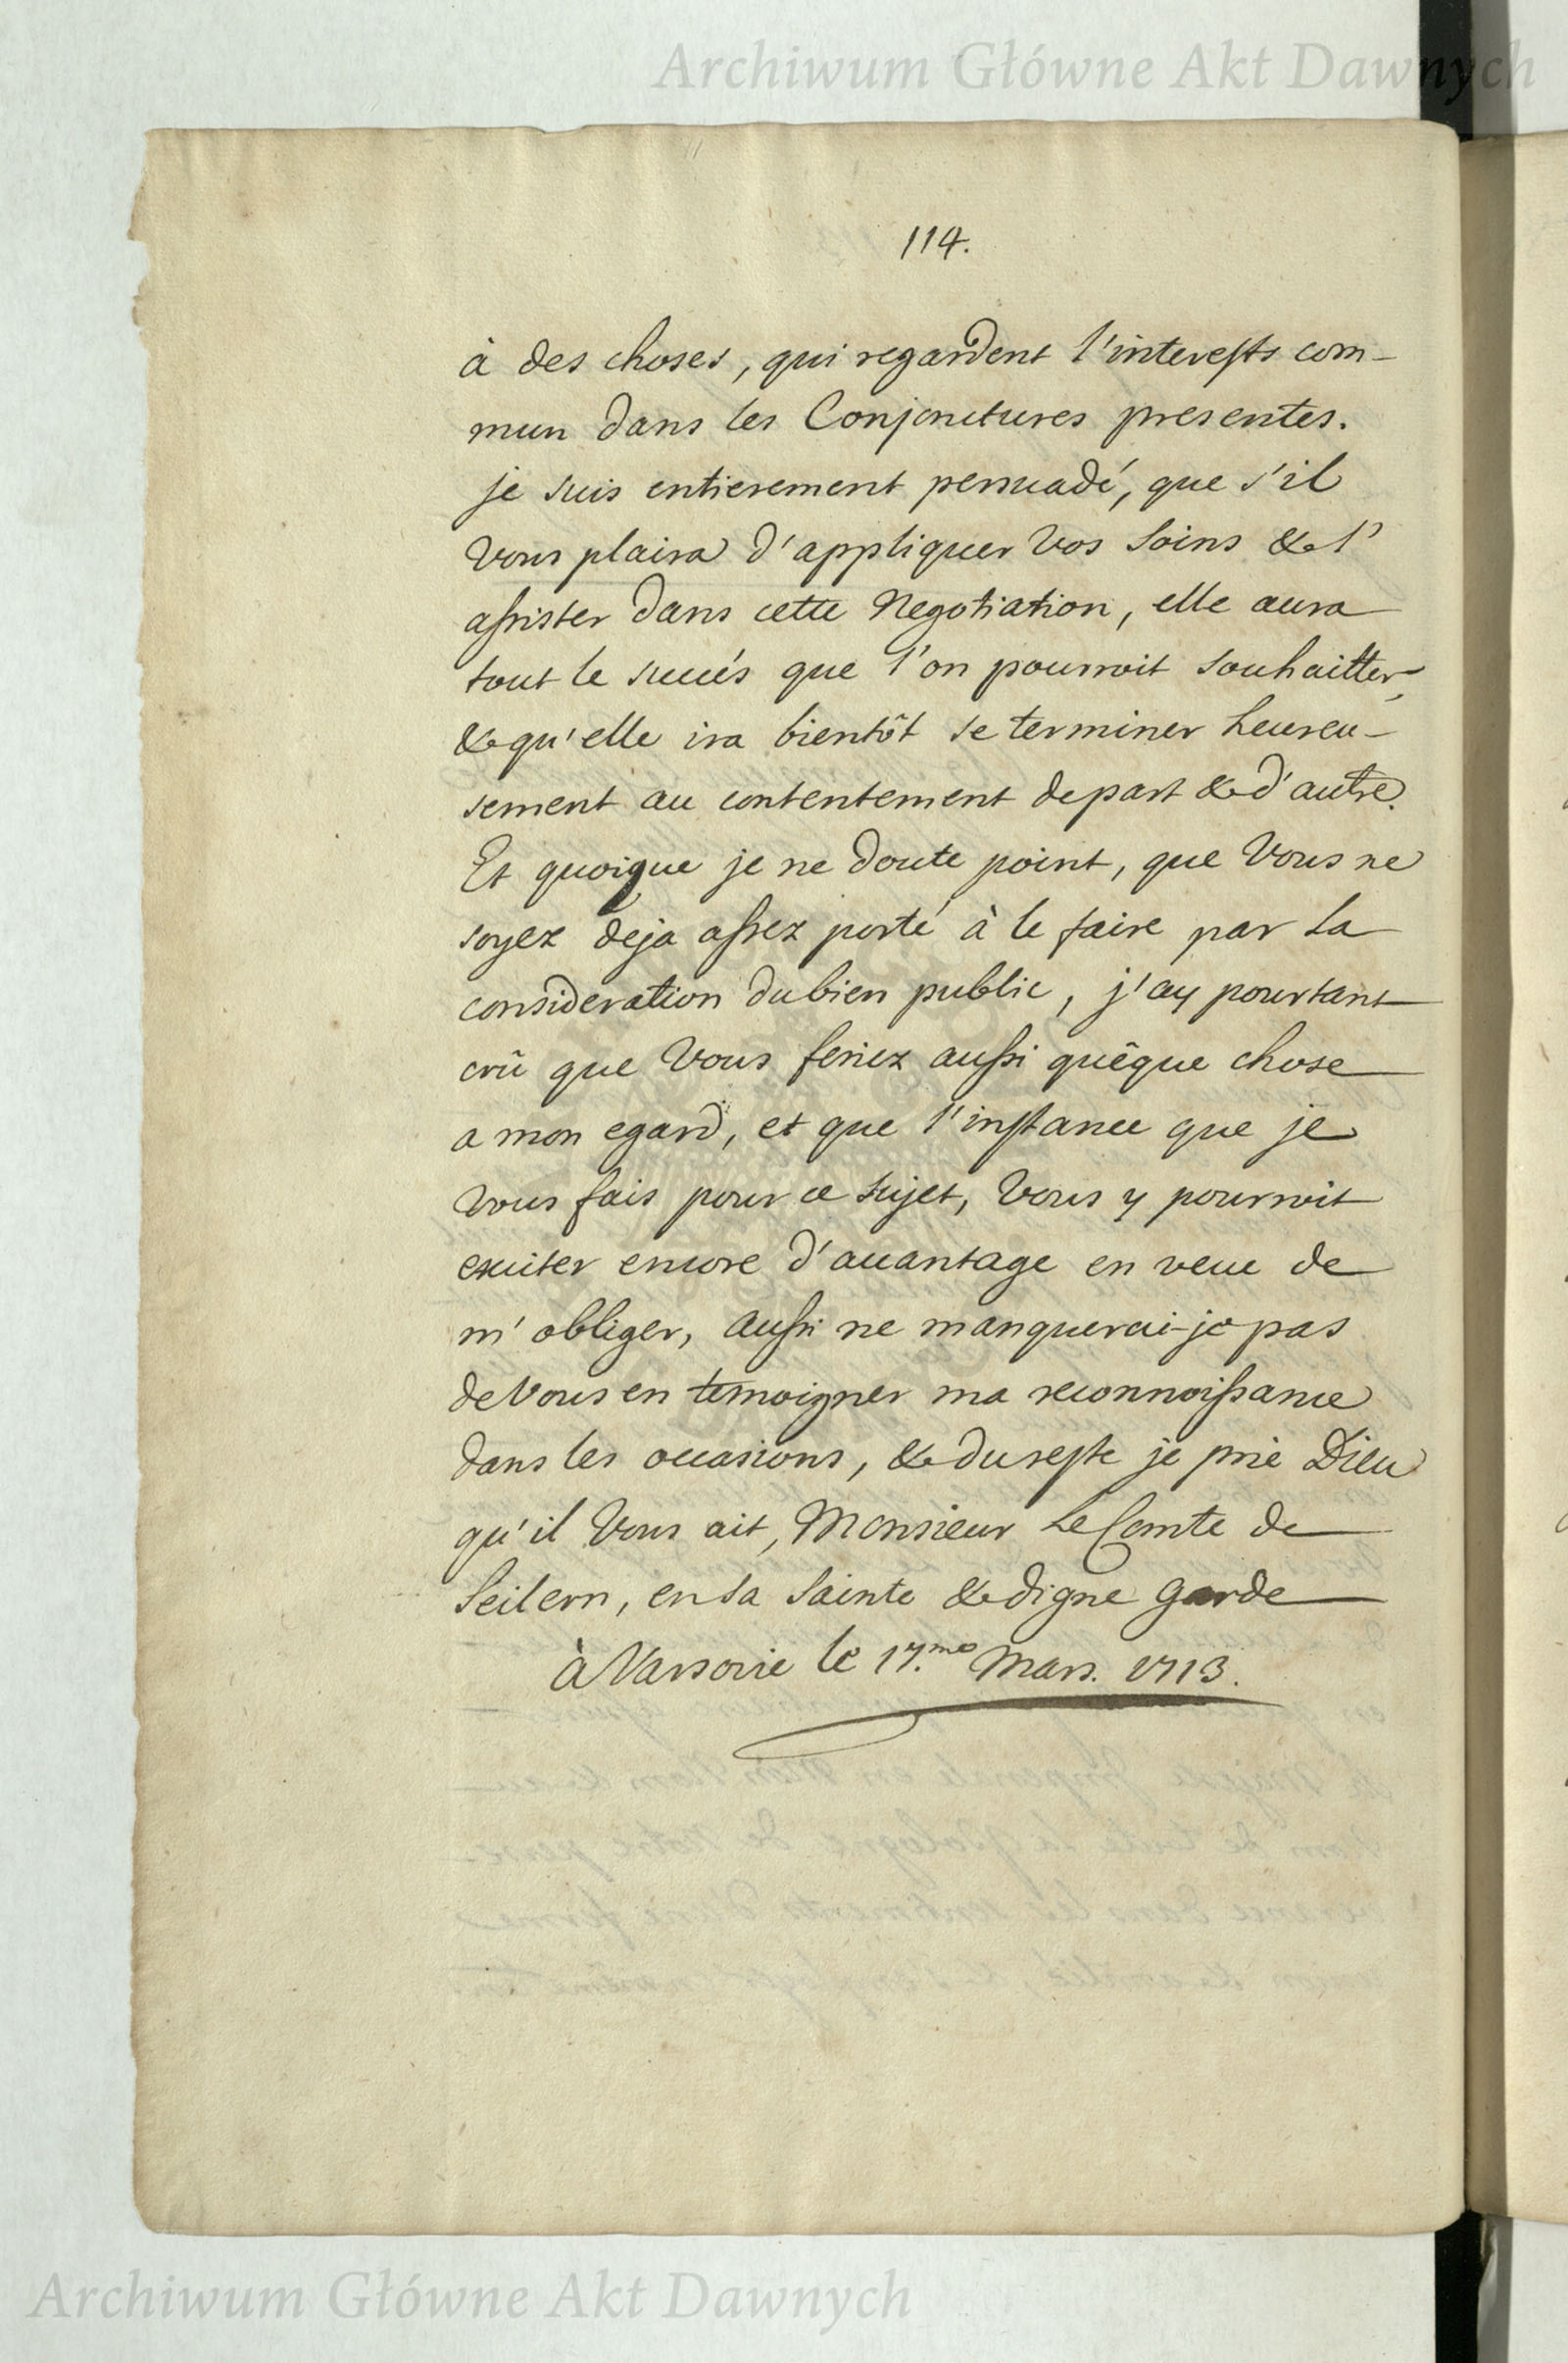 Archiwum Główne Akt Dawnych
114.
à des choses, qui regardent l'interests com-
mun dans les Conjonctures presentes.
je suis entierement persuadé, que s'il
Vous plaira d'appliquer Vos Soins & l'
assister dans cette Negotiation, elle aura
tout le succés que l'on pourroit souhaitter,
& qu'elle ira bientôt se terminer heureu-
sement au contentement de part & d'autre.
Et quoique je ne doute point, que Vous ne
soyez deja assez porté à le faire par la
consideration du bien public, j'ay pourtant
crû que Vous feriez aussi quêque chose
a mon egard, et que l'instance que je
Vous fais pour ce sujet, Vous y pourroit
exciter encore d'auantage en veue de
m'obliger, aussi ne manquerai-je pas
de Vous en temoigner ma reconnoissance
dans les occasions, & du reste je prie Dieu
qu'il Vous ait, Monsieur Le Comte de
Seilern, en sa Sainte & digne garde
à Varsovie le 17.me Mars. 1713.
Archiwum Główne Akt Dawnych